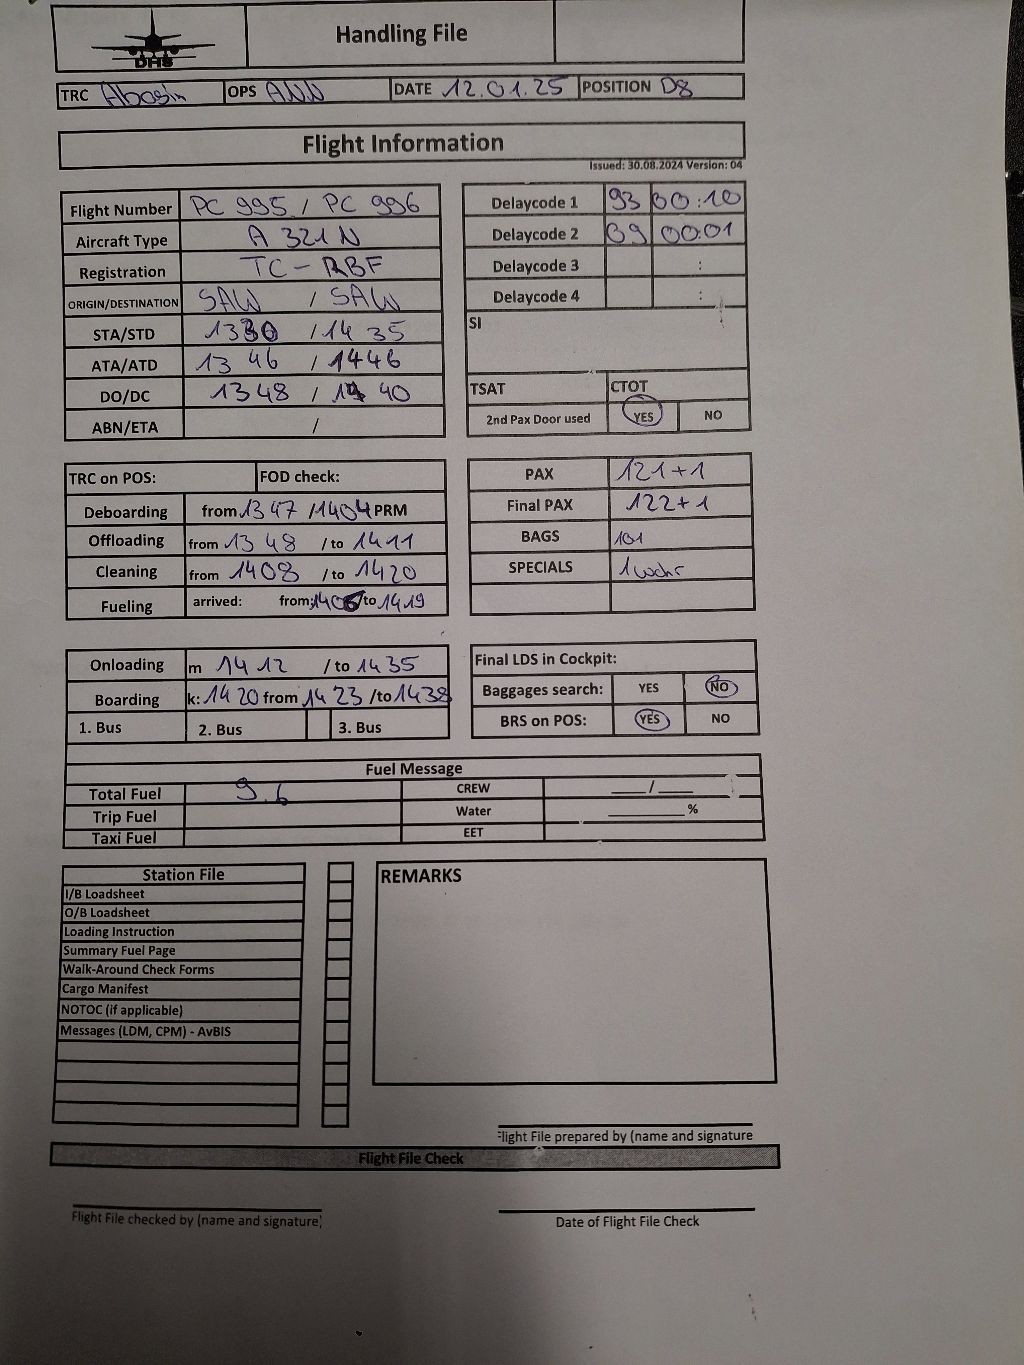 DHS
Handling File
TRC Abosin OPS ANN DATE 12.01.25 POSITION D8
Flight Information
Issued: 30.08.2024 Version: 04
Flight Number PC 995 / PC 996
Aircraft Type A 321 N
Registration TC-RBF
ORIGIN/DESTINATION SAW / SAW
STA/STD 1330 / 14 35
ATA/ATD 13 46 / 1446
DO/DC 1348 / 14 40
ABN/ETA /
Delaycode 1 93 00:10
Delaycode 2 09 00:01
Delaycode 3 :
Delaycode 4 :
SI
TSAT CTOT
2nd Pax Door used YES NO
TRC on POS: FOD check:
Deboarding from 1347 / 1404 PRM
Offloading from 13 48 / to 1411
Cleaning from 1408 / to 1420
Fueling arrived: from: 1406 to 1419
PAX 121+1
Final PAX 122+1
BAGS 101
SPECIALS 1 wchr
Onloading m 14 12 / to 1435
Boarding k: 14 20 from 14 23 / to 1438
1. Bus 2. Bus 3. Bus
Final LDS in Cockpit:
Baggages search: YES NO
BRS on POS: YES NO
Fuel Message
Total Fuel 9.6 CREW ____/____
Trip Fuel Water ________%
Taxi Fuel EET
Station File
I/B Loadsheet
O/B Loadsheet
Loading Instruction
Summary Fuel Page
Walk-Around Check Forms
Cargo Manifest
NOTOC (if applicable)
Messages (LDM, CPM) - AvBIS
REMARKS
Flight File prepared by (name and signature
Flight File Check
Flight File checked by (name and signature)
Date of Flight File Check